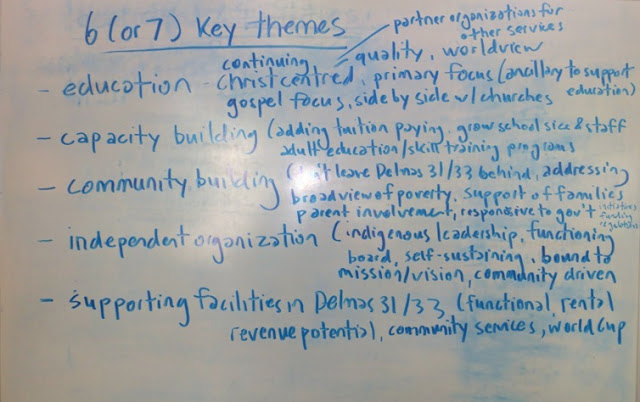 6 (or 7) Key themes
partner organizations for
other services
continuing quality, worldview
- education - Christcentred, primary focus (ancillary to support
education)
gospel focus, side by side w/ churches
- capacity building (adding tuition paying, grow school size & staff
adult education/skill training programs
- community building ( leave Delmas 31/33 behind, addressing
broad view of poverty, support of families
parent involvement, responsive to gov't initiatives
funding
regulations
- independent organization (indigenous leadership, functioning
board, self-sustaining, bound to
mission/vision, community driven
- supporting facilities in Delmas 31/33 (functional, rental
revenue potential, community services, world cup